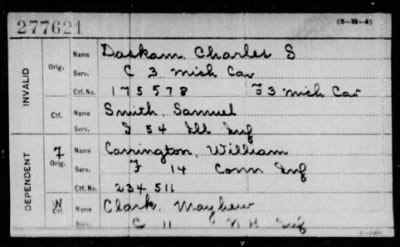 277621 (3-15-4)
INVALID
Orig. Name Daskam, Charles S
Serv. C 3 Mich Cav
Ctf. No. 175578 F 3 Mich Cav
Ctf. Name Smith, Samuel
Serv. 54 Ill Inf
DEPENDENT
7 Orig. Name Carrington, William
Serv. F 14 Conn Inf
Ctf. No. 234511
W Ctf. Name Clark, Mayhew
C 11 N H Inf